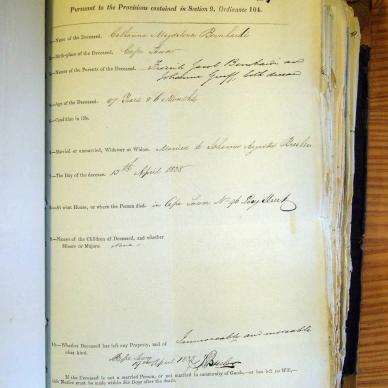 Pursuant to the Provisions contained in Section 9, Ordinance 104.
1.—Name of the Deceased. Catharina Magdalena Bernhardi
2.—Birth-place of the Deceased. Cape Town
3.—Names of the Parents of the Deceased. Jacob Bernhardi and
Johanna both deceased
4.—Age of the Deceased. 67 Years & 6 Months
5.—Condition in life.
6.—Married or unmarried, Widower or Widow. Married to Johannes Augustus
7.—The Day of the decease. 13th April 1838
8.—At what House, or where the Person died. in Cape Town No 46 Street
9.—Names of the Children of Deceased, and whether
Minors or Majors. None
10.—Whether Deceased has left any Property, and of
what kind. Immoveable and moveable
Cape Town
April
If the Deceased is not a married Person, or not married in community of Goods,—or has left no Will,—
this Notice must be made within Six Days after the death.